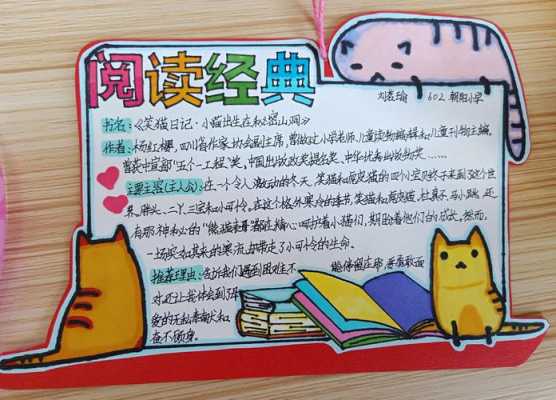 阅读经典
刘宸瑜 602 朝阳小学
书名：《笑猫日记·小猫出生在秘密山洞》
作者：杨红樱，四川省作家协会副主席，曾做过小学老师、儿童读物编辑和儿童刊物主编。
曾获中宣部"五个一工程"奖，中国出版政府奖提名奖，中华优秀出版物奖……
主要主容(主人公)：在一个令人激动的冬天，笑猫和虎皮猫的四个宝贝终于来到这个世
界，胖头、二丫、三宝和小可怜。在这个格外寒冷的季节，笑猫和虎皮猫，杜真子、马小跳，还
有那神秘的"熊猫和尊"都在精心呵护着小猫们，期盼着他们的成长。然而，
一场突如其来的寒流却带走了小可怜的生命。
推荐理由：告诉我们遇到困难不
对还让我体会到了母
爱的无私奉献和
奋不顾身。